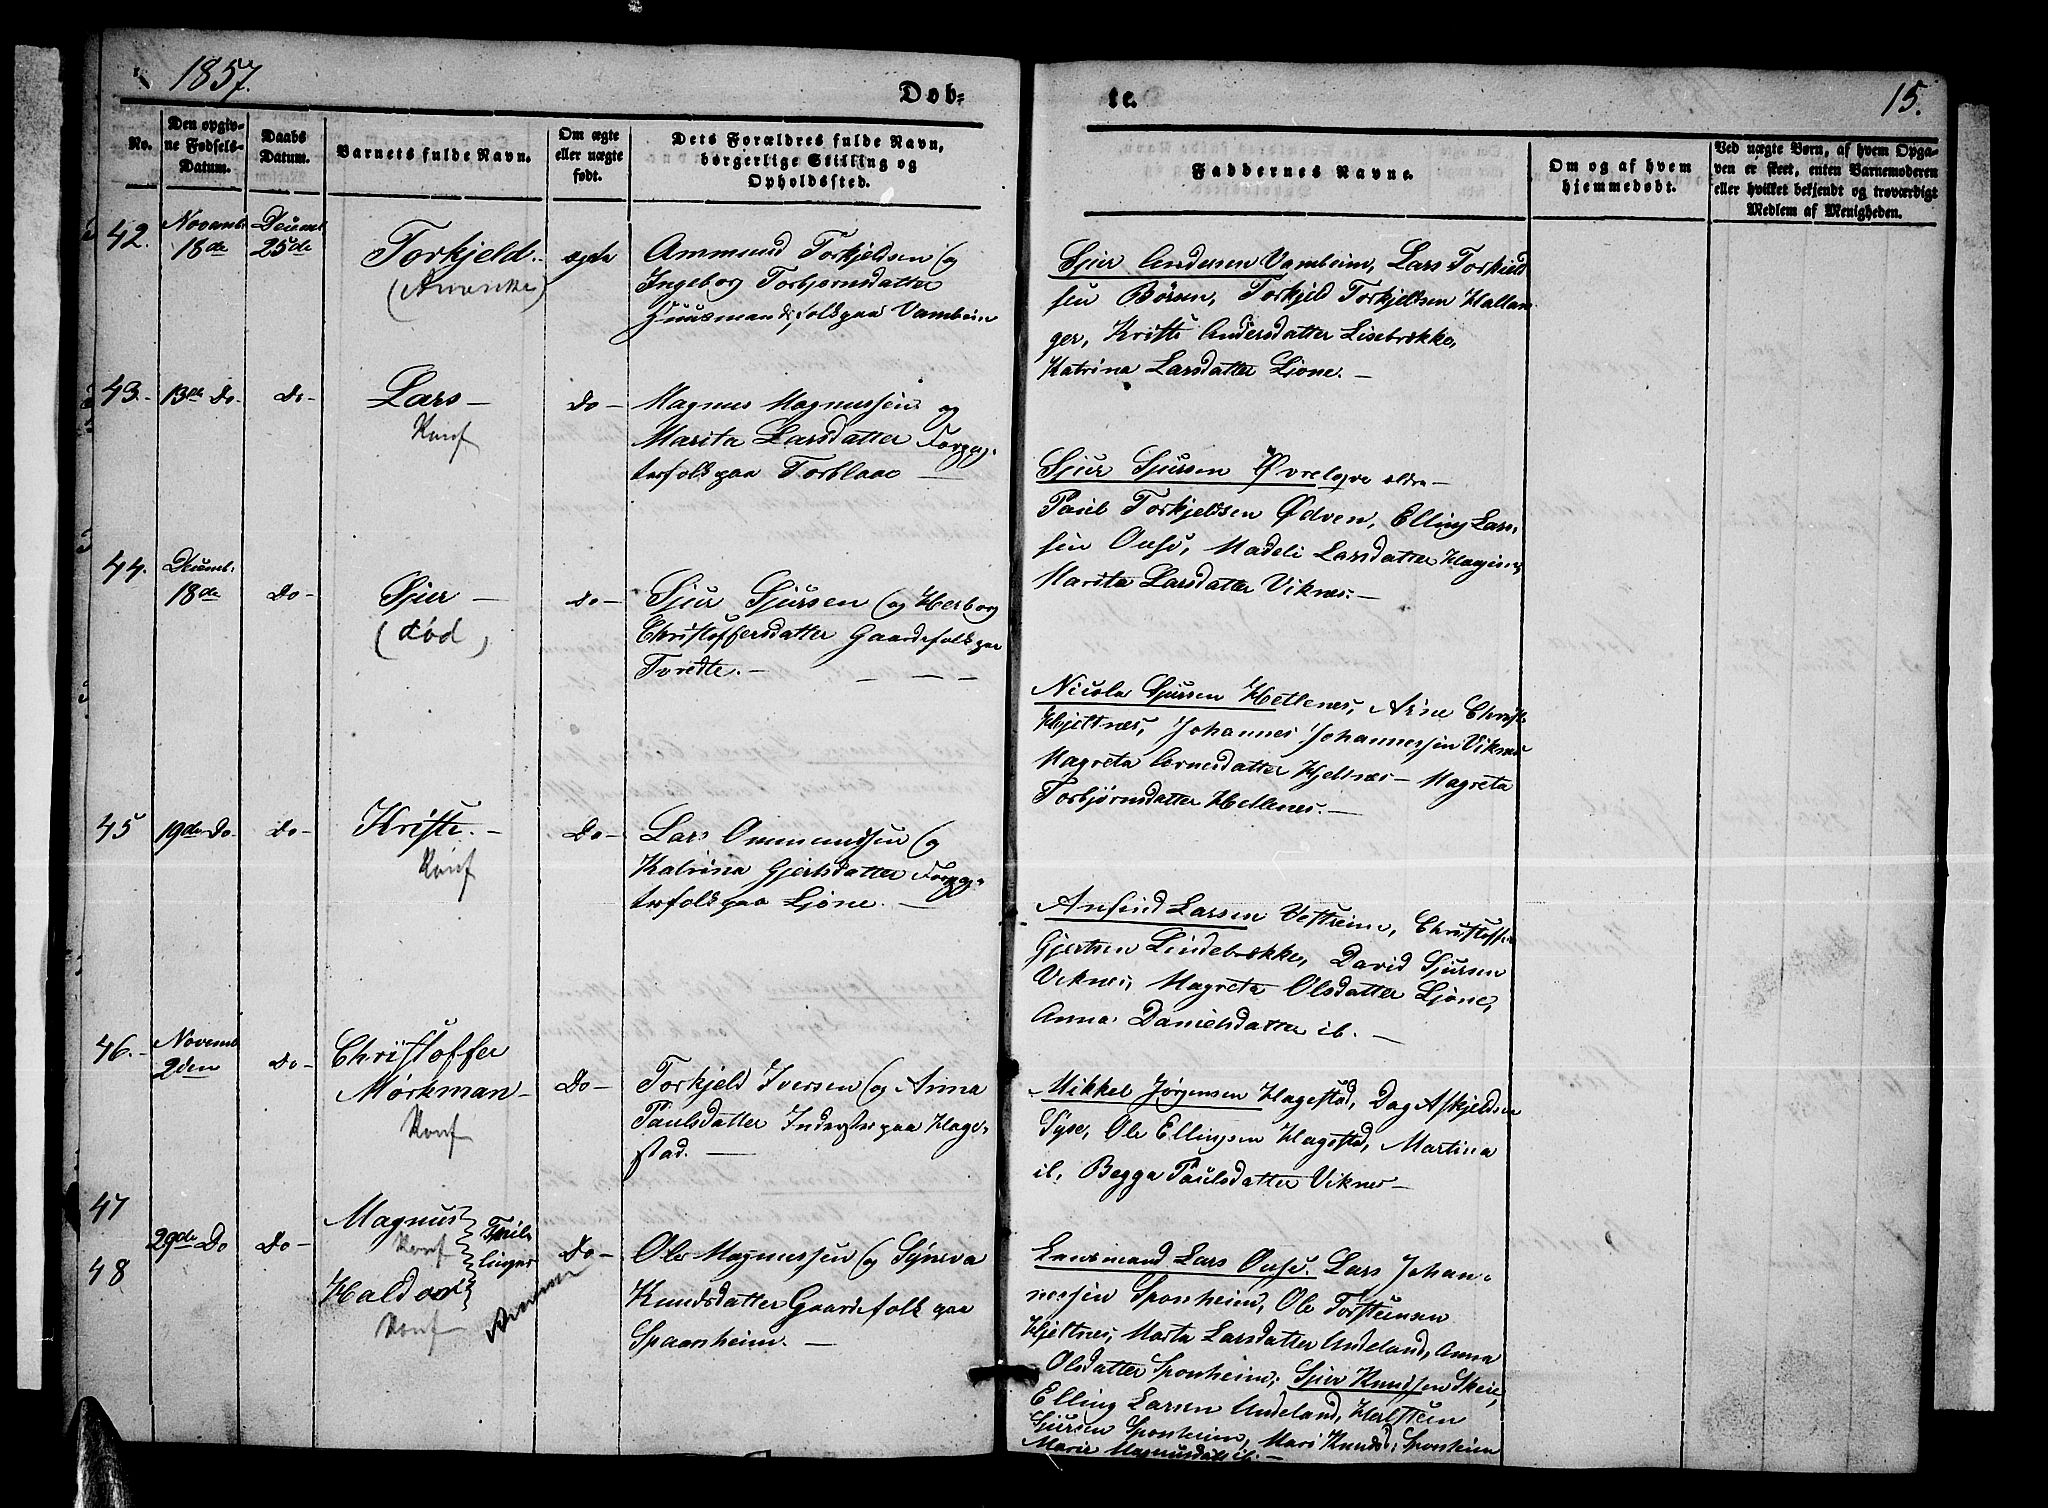 1857.
Døb=
te.
15.
No.
Den opgiv-
ne Fødsels-
Datum.
Daabs
Datum.
Barnets fulde Navn.
Om ægte
eller uægte
født.
Dets Forældres fulde Navn,
borgerlige Stilling og
Opholdssted.
Faddernes Navne.
Om og af hvem
hjemmedøbt.
Ved uægte Børn, af hvem Opga-
ven er skeet, enten Barnemoderen
eller hvilket bekjendt og troværdigt
Medlem af Menigheden.
42.
Novemb.
18de
Decemb.
25de
Torkjeld.
ægte
Ammund Torkjeldsen og
Ingeborg Torbjørnsdatter
Huusmandsfolk paa Vambeim
Sjur Andersen Vambeim, Lars Torkield
sen Børsen, Torkjeld Torkjeldsen Hallan
ger, Kristi Andersdatter Lisebrække,
Katrina Larsdatter Ljone. —
43. -
13de Do -
Do -
Lars —
Konf
Do -
Magnus Magnussen og
Marita Larsdatter Forpag-
terfolk paa Torblaae —
Sjur Sjursen Øvreleqve ældre —
Paul Torkjeldsen Ødven, Elling Lars,
sen Ouse, Madeli Larsdatter Hagene,
Marita Larsdatter Viknes. —
44.
Decemb.
18de
Do -
Sjur —
(død)
Do -
Sjur Sjursen og Herborg
Christoffersdatter Gaardefolk paa
Tveidte. —
Nicola Sjursen Hetlenes, Arne Christ.
Hjeltnes, Johannes Johannessen Viknes
Magreta Arnesdatter Hjeltnes — Magreta
Torbjørnsdatter Hetlenes. —
45
19de Do
Do -
Kristi. —
Konf
Do -
Lars Ommundsen og
Katrina Gjertsdatter Forpag-
terfolk paa Ljone. —
Anfind Larsen Vestreim, Christoffer
Gjertsen Lindebrække, David Sjursen
Viknes, Magreta Olsdatter Ljone,
Anna Danielsdatter ib. —
46. -
Novemb
2den
Do -
Christoffer
Mørkman -
Konf
Do -
Torkjeld Iversen og Anna
Paulsdatter Inderster paa Hage-
stad. —
Mikkel Jørgensen Hagestad, Dag Askjeldsen
Syse, Ole Ellingsen Hagestad, Martina
ib, Begga Paulsdatter Viknes —
47
48
29de Do
Do -
Magnus
Konf
Haldor
Konf
Tvil-
linger
Do -
Ole Magnussen og Synsva
Knudsdatter Gaardefolk paa
Spaanheim. —
Lensmand Lars Ouse. Lars Johan-
nessen Sponheim, Ole Torsteinsen
Hjeltnes, Marta Larsdatter Undeland, Anna
Olsdatter Sponheim; Sjur Knudsen Skeie,
Elling Larsen Undeland, Halsten
Sjursen Sponheim, Mari Knudsd. Sponheim
Marie Magnusdatt. ib. —